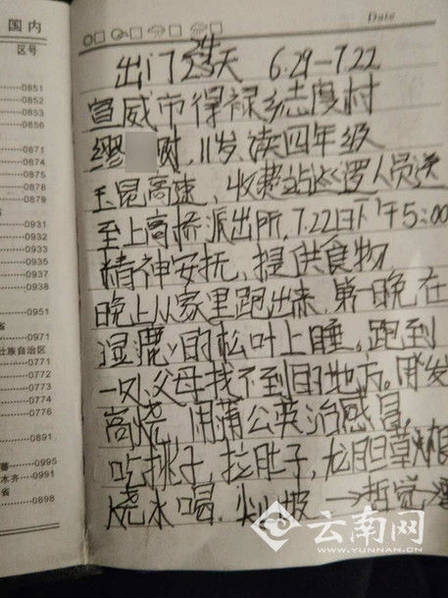 国内
区号
Date
0851
0852
0853
0856
0871
0874
0875
0878
0879
0931
0932
0933
0935
0937
0938
0951
省
0971
壮族自治区
0772
0771
0773
0774
0776
0891
0995
0991
木齐
省
0898
出门24天 6.29-7.22
宣威市得禄乡志度村
缪 财,11岁,读四年级
玉昆高速、收费站巡逻人员送
至上高桥派出所,7.22日下午5:00
精神安抚、提供食物
晚上从家里跑出来,第一晚在
湿的松叶上睡,跑到
一个父母找不到的地方。
高烧 用蒲公英治感冒
吃桃子,拉肚子,龙胆草根
烧水喝.
云南网
WWW.YUNNAN.CN